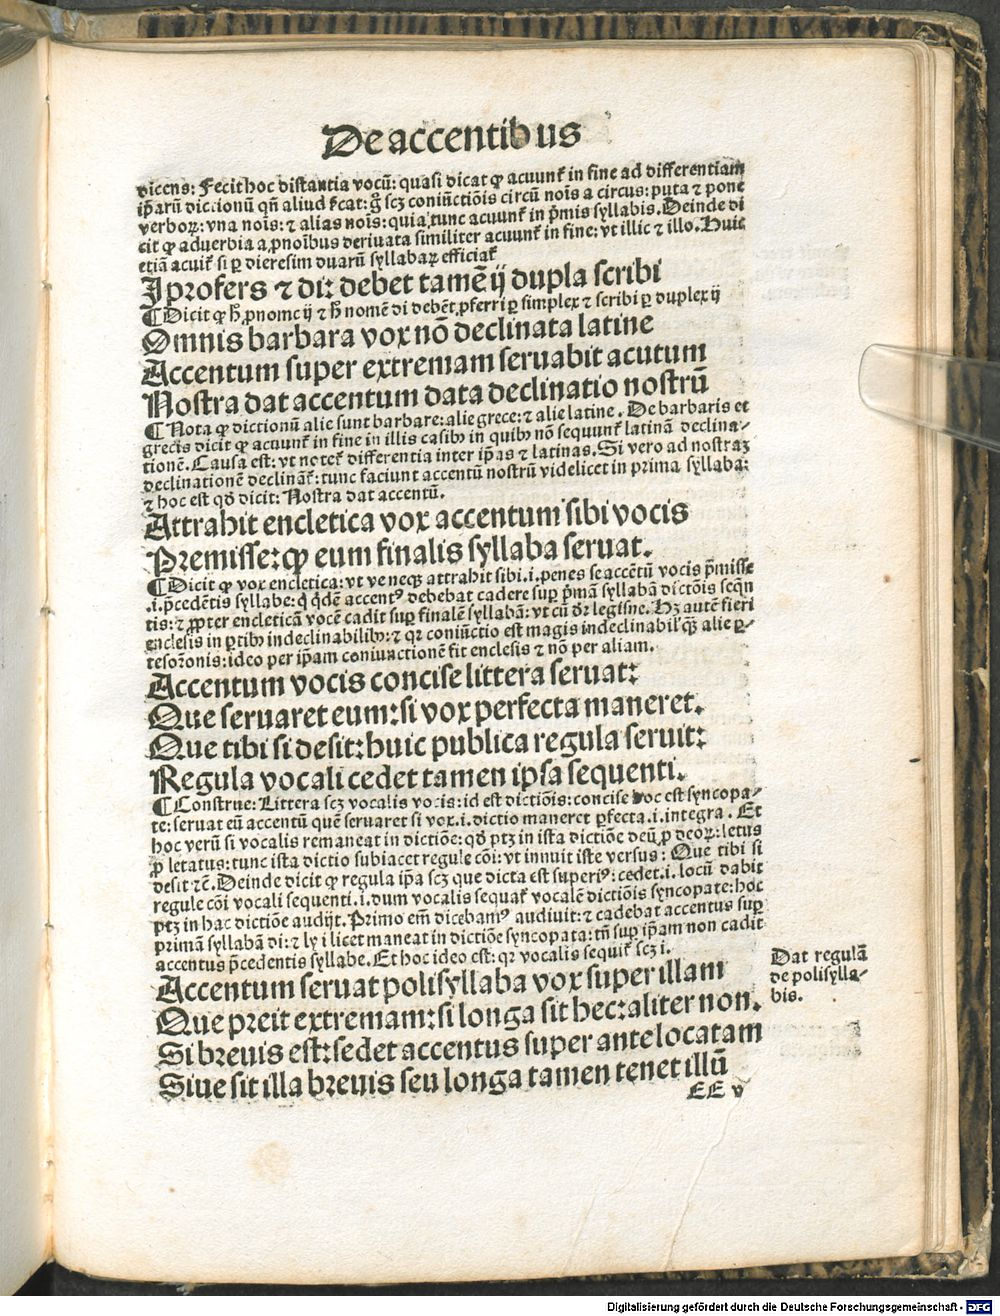 De accentibus
dicens: Fecit hoc distantia vocū: quasi dicat ꝙ acuunt᷑ in fine ad differentiam
ip̄arū dictionū qn̄ aliud s̄cat: g̊ scꝫ coniūctiōis circū nois a circus: puta ⁊ pone
verboꝝ: vna nois: ⁊ alias nois: quia tunc acuunt᷑ in p̄mis syllabis. Deinde di
cit ꝙ aduerbia a ꝓnoībus deriuata similiter acuunt᷑ in fine: vt illic ⁊ illo. Huic
etiā acuit᷑ si ꝑ dieresim duarū syllabaꝝ efficiat᷑
I profers ⁊ di: debet tamē ij dupla scribi
¶ Dicit ꝙ h̄ ꝓnomē ij ⁊ h̄ nomē di debēt ꝓferri ꝑ simplex ⁊ scribi ꝑ duplex ij
Omnis barbara vox nō declinata latine
Accentum super extremam seruabit acutum
Nostra dat accentum data declinatio nostrū
¶ Nota ꝙ dictionū alie sunt barbare: alie grece: ⁊ alie latine. De barbaris et
grecis dicit ꝙ acuunt᷑ in fine in illis casibꝰ in quibꝰ nō sequunt᷑ latinā declina-
tionē. Causa est: vt notet᷑ differentia inter ip̄as ⁊ latinas. Si vero ad nostraꝫ
declinationē declinātᷣ: tunc faciunt accentū nostrū videlicet in prima syllaba:
⁊ hoc est qd̄ dicit: Nostra dat accentū.
Attrahit encletica vox accentum sibi vocis
Premisse: ꝙ eum finalis syllaba seruat.
¶ Dicit ꝙ vox encletica: vt ve neqꝫ attrahit sibi .i. penes se accētū vocis p̄misse
.i. p̄cedētis syllabe: q̇ q̇dē accentꝰ debebat cadere suꝑ p̄mā syllabā dictōis seqn̄
tis: ⁊ ꝓpter encleticā vocē cadit suꝑ finalē syllabā: vt cū dr̄ legisne. Hꝫ autē fieri
enclesis in ꝑtibꝰ indeclinabilibꝰ: ⁊ qꝛ coniūctio est magis indeclinabil' qꝫ alie ꝑ-
tes orōnis: ideo per ip̄am coniunctionē fit enclesis ⁊ nō per aliam.
Accentum vocis concise littera seruat:
Que seruaret eum: si vox perfecta maneret.
Que tibi si desit: huic publica regula seruit:
Regula vocali cedet tamen ipsa sequenti.
¶ Construe: Littera scꝫ vocalis vocis: id est dictiōis: concise hoc est syncopa-
te: seruat eū accentū quē seruaret si vox .i. dictio maneret ꝑfecta .i. integra. Et
hoc verū si vocalis remaneat in dictiōe: qd̄ ptꝫ in ista dictiōe deū ꝓ deoꝝ: letus
ꝓ letatus: tunc ista dictio subiacet regule cōi: vt innuit iste versus: Que tibi si
desit ⁊c̄. Deinde dicit ꝙ regula ip̄a scꝫ que dicta est superiꝰ: cedet .i. locū dabit
regule cōi vocali sequenti .i. dum vocalis sequat᷑ vocalē dictiōis syncopate: hoc
ptꝫ in hac dictiōe audijt. Primo em̄ dicebamꝰ audiuit: ⁊ cadebat accentus suꝑ
primā syllabā di: ⁊ ly i licet maneat in dictiōe syncopata: tn̄ suꝑ ip̄am non cadit
accentus p̄cedentis syllabe. Et hoc ideo est: qꝛ vocalis sequit᷑ scꝫ i.
Accentum seruat polisyllaba vox super illam
Que preit extremam: si longa sit hec: aliter non.
Si breuis est: sedet accentus super ante locatam
Siue sit illa breuis seu longa tamen tenet illū
Dat regulā
de polisylla-
bis.
EE v
Digitalisierung gefördert durch die Deutsche Forschungsgemeinschaft - DFG